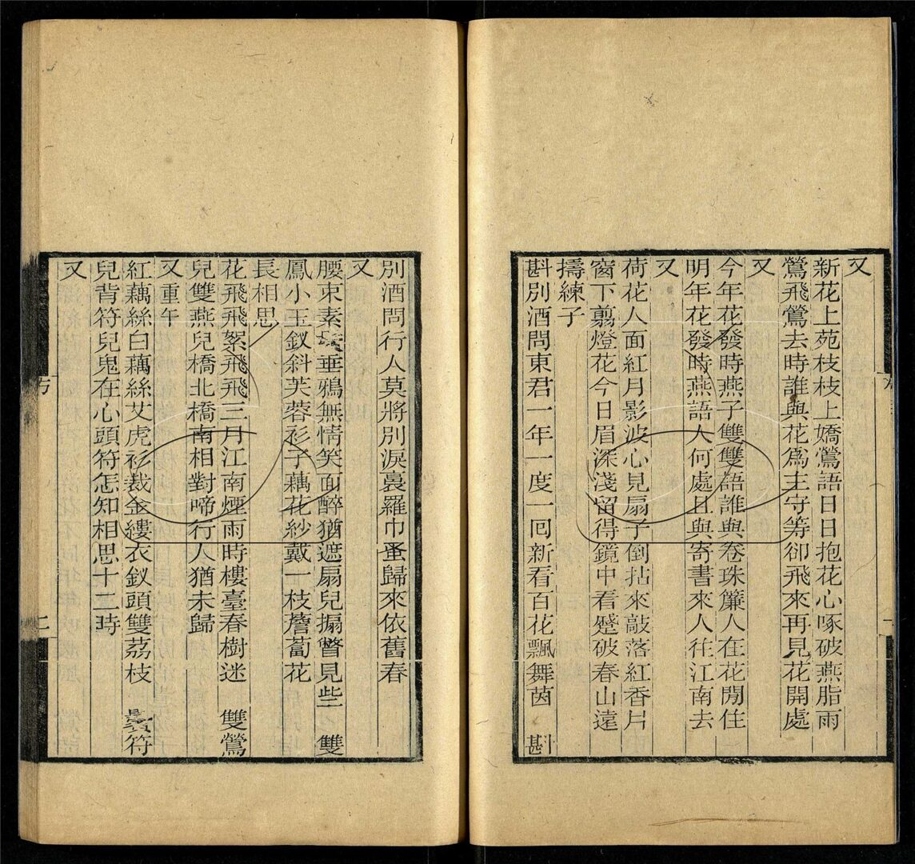 又
新花上苑枝枝上嬌鶯語日日抱花心啄破燕脂雨
鶯飛鶯去時誰與花爲主守等卻飛來再見花開處
又
今年花發時燕子雙雙語誰與卷珠簾人在花間住
明年花發時燕語人何處且與寄書來人往江南去
又
荷花人面紅月影波心見扇子倒拈來敲落紅香片
窗下翦燈花今日眉深淺留得鏡中看蹙破春山遠
擣練子
斟別酒問東君一年一度一囘新看百花飄舞茵　斟
別酒問行人莫將別淚裛羅巾蚤歸來依舊春
又
腰束素 垂鴉無情笑面醉猶遮扇兒搧瞥見些　雙
鳳小玉釵斜芙蓉衫子藕花紗戴一枝薝蔔花
長相思
花飛飛絮飛飛三月江南煙雨時樓臺春樹迷　雙鶯
兒雙燕兒橋北橋南相對啼行人猶未歸
又重午
紅藕絲白藕絲艾虎衫裁金縷衣釵頭雙荔枝　符
兒背符兒鬼在心頭符怎知相思十二時
又
二